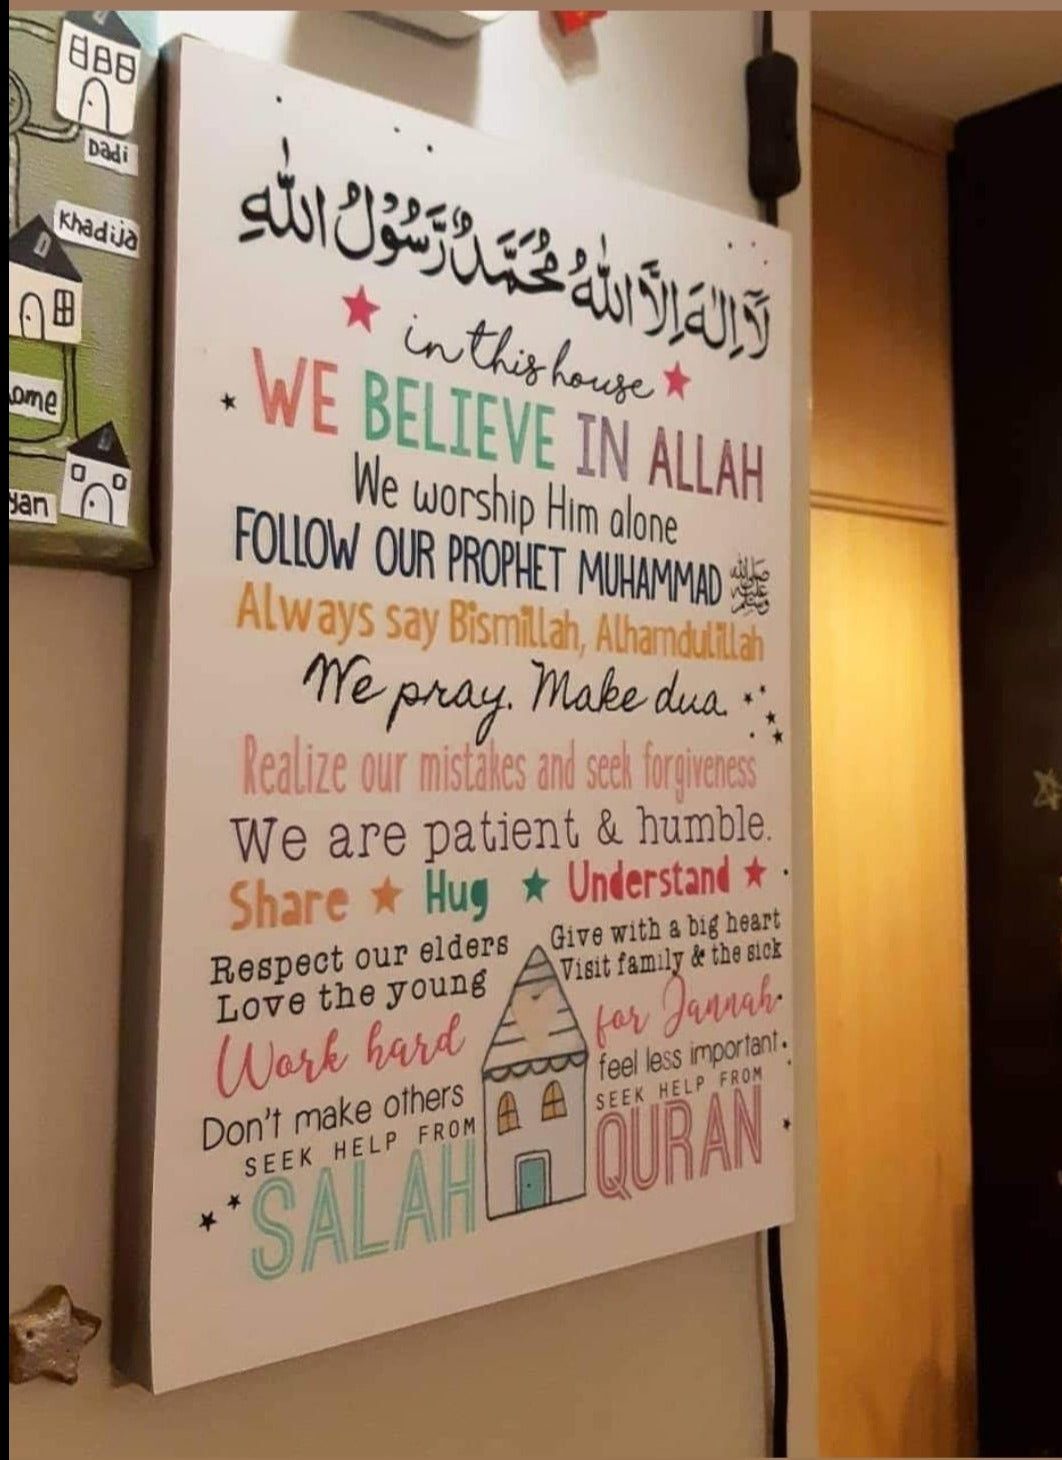 Dadi
Khadija
ome
yan
لَا اِلٰهَ اِلَّا اللّٰهُ مُحَمَّدٌ رَّسُوْلُ اللّٰهِ
in this house
WE BELIEVE IN ALLAH
We worship Him alone
FOLLOW OUR PROPHET MUHAMMAD ﷺ
Always say Bismillah, Alhamdulillah
We pray. Make dua.
Realize our mistakes and seek forgiveness
We are patient & humble.
Share ★ Hug ★ Understand ★
Respect our elders
Love the young
Give with a big heart
Visit family & the sick
Work hard for Jannah
Don't make others feel less important.
SEEK HELP FROM
SALAH
SEEK HELP FROM
QURAN